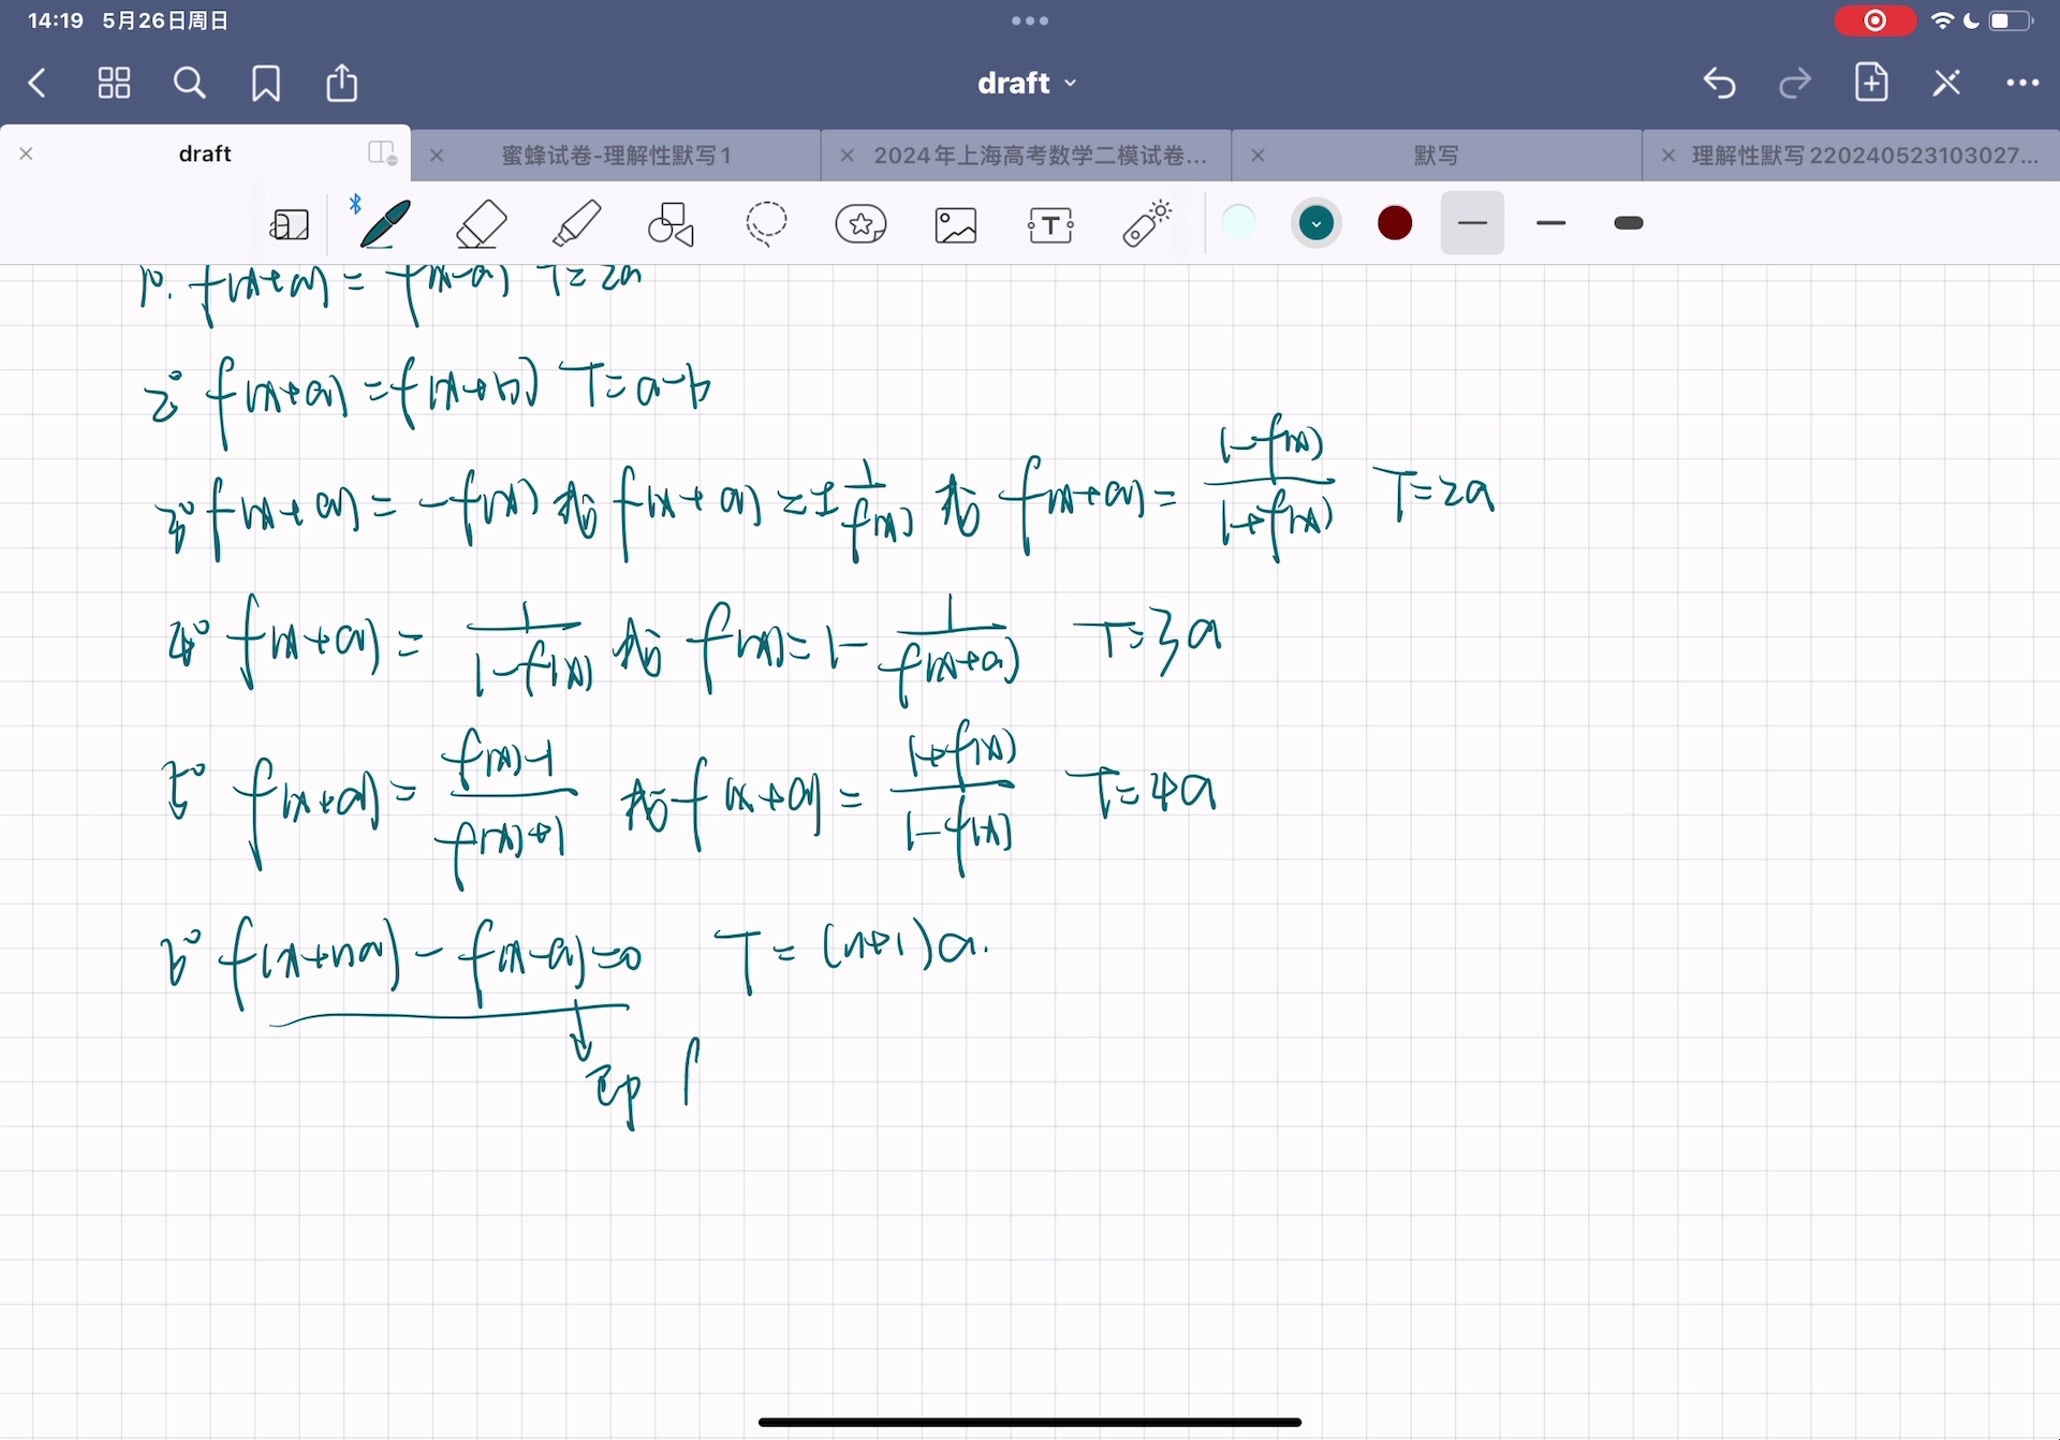 14:19 5月26日周日
draft
draft
蜜蜂试卷-理解性默写1
2024年上海高考数学二模试卷...
默写
理解性默写220240523103027...
1°. f(x+a) = f(x-a) T=2a
2° f(x+a) = f(x+b) T=a-b
3° f(x+a) = -f(x) 或 f(x+a) = ±1/f(x) 或 f(x+a) = (1-f(x))/(1+f(x)) T=2a
4° f(x+a) = 1/(1-f(x)) 或 f(x) = 1-1/f(x+a) T=3a
5° f(x+a) = (f(x)-1)/(f(x)+1) 或 f(x+a) = (1+f(x))/(1-f(x)) T=4a
6° f(x+na) - f(x-a) = 0 T = (n+1)a.
↓
即